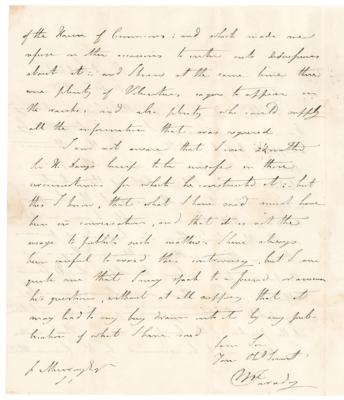 of the House of Commons: and which made me
refuse on other occasions to enter into discussions
about it: and I knew at the same time there
were plenty of Volunteers eager to appear in
the ranks: and also plenty who could supply
all the information that was required
I am not aware that I ever
Sir H. Davys lamp to be unsafe in those
circumstances for which he constructed it; but
this I know, that what I have said must have
been in conversation, and that it is not the
usage to publish such matters. I have always
been careful to avoid the controversy, but I am
quite sure that I may speak to a friend or answer
his questions, without at all supposing that it
may lead to my being drawn into it by any pub-
lication of what I have said
I am Sir
Your Obdt Servant
M Faraday
J Murray Esq